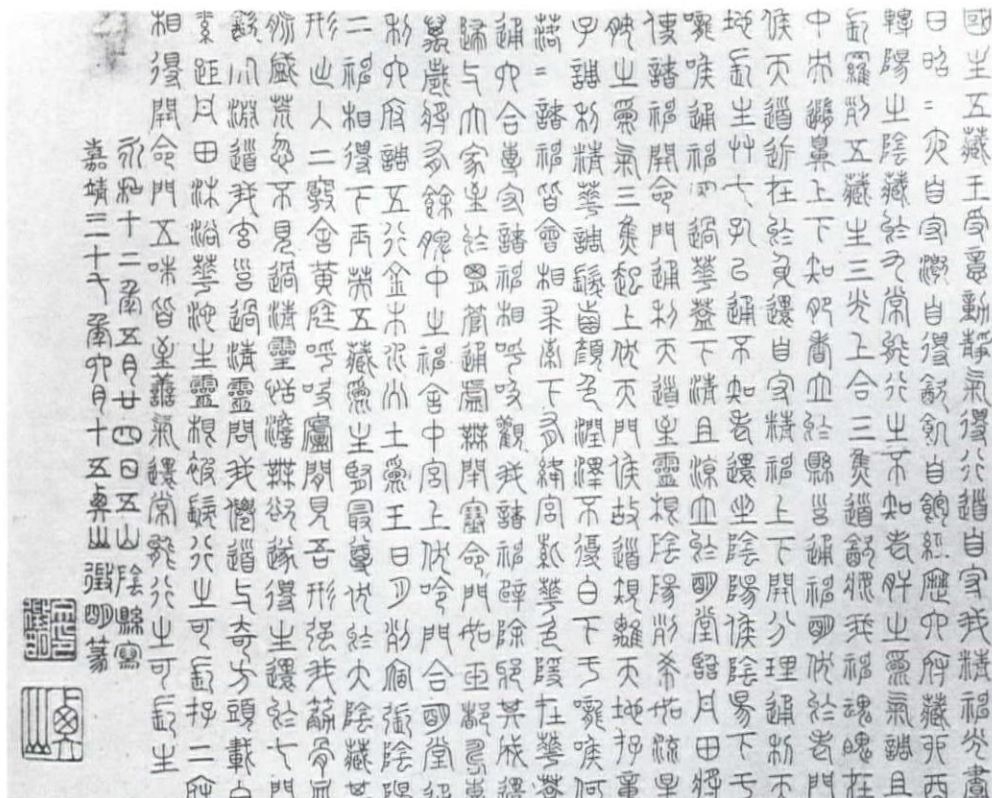 國主五藏王受意動靜氣得行道自守我精神光晝
日昭=夜自守渴自得飲飢自飽經歷六府藏卯酉
轉陽之陰藏於九常能行之不知老肝之爲氣調且
長羅列五藏生三光上合三焦道飲漿我神魂魄在
中央隨鼻上下知肥香立於懸膺通神明伏於老門
候天道近在於身還自守精神上下開分理通利天
地長生艸七孔已通不知老還坐陰陽候陰昜下于
嚨喉通神明過華蓋下清且涼立於明堂臨丹田將
使諸神開命門通利天道至靈根陰陽列布如流星
肺之爲氣三焦起上伏天門候故道規離天地存童
子調利精華調髮齒顏色潤澤不復白下于嚨喉何
落=諸神皆會相求索下有絳宮紫華色隱在華蓋
通六合專守諸神相呼吸觀我諸神辟除邪其成還
歸與大家至於胃管通虛無閉塞命門如玉都壽專
萬歲將有餘脾中之神舍中宮上伏命門合明堂通
利六府調五行金木水火土爲王日月列宿張陰陽
二神相得下玉英五藏爲主腎最尊伏於大陰藏其
形出入二竅舍黃庭呼吸廬間見吾形强我筋骨血
脈盛荒忽不見過清靈恬澹無欲遂得生還於七門
飲大淵道我玄膺過清靈問我僊道與奇方頭載白
素距丹田沐浴華池生靈根被髮行之可長存二府
相得開命門五味皆至善氣還常能行之可長生
永和十二年五月廿四日五山陰縣寫
嘉靖三十七年卯月十五 徵明篆